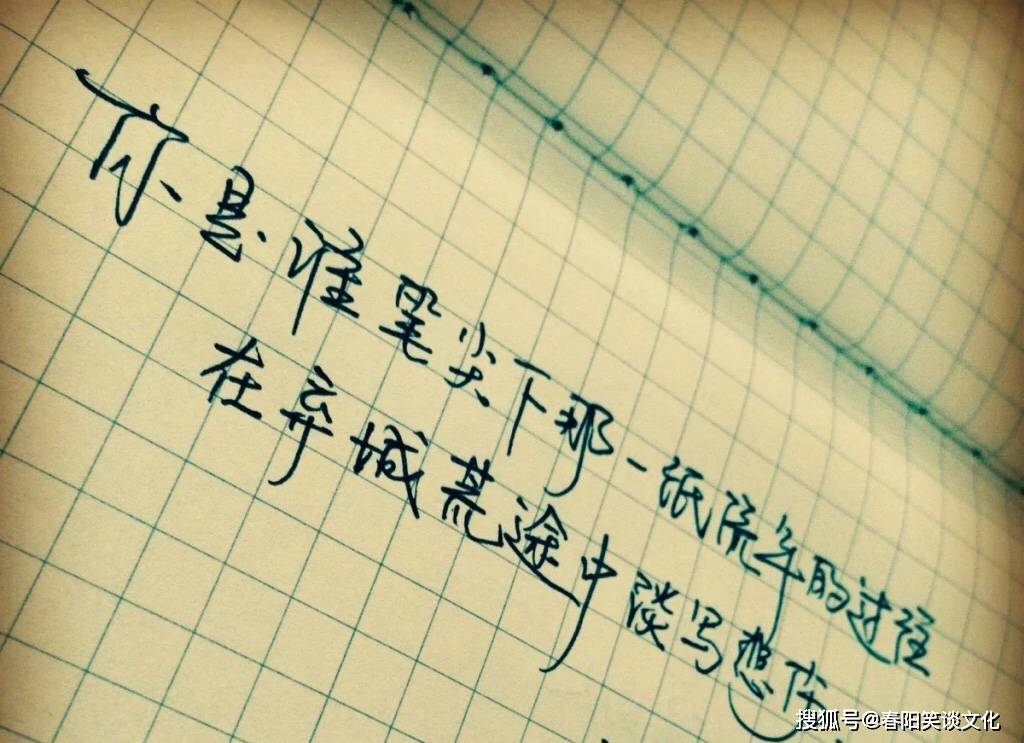 亦是谁笔尖下那一纸流年的过往
在弃城荒途中淡写想
搜狐号@春阳笑谈文化